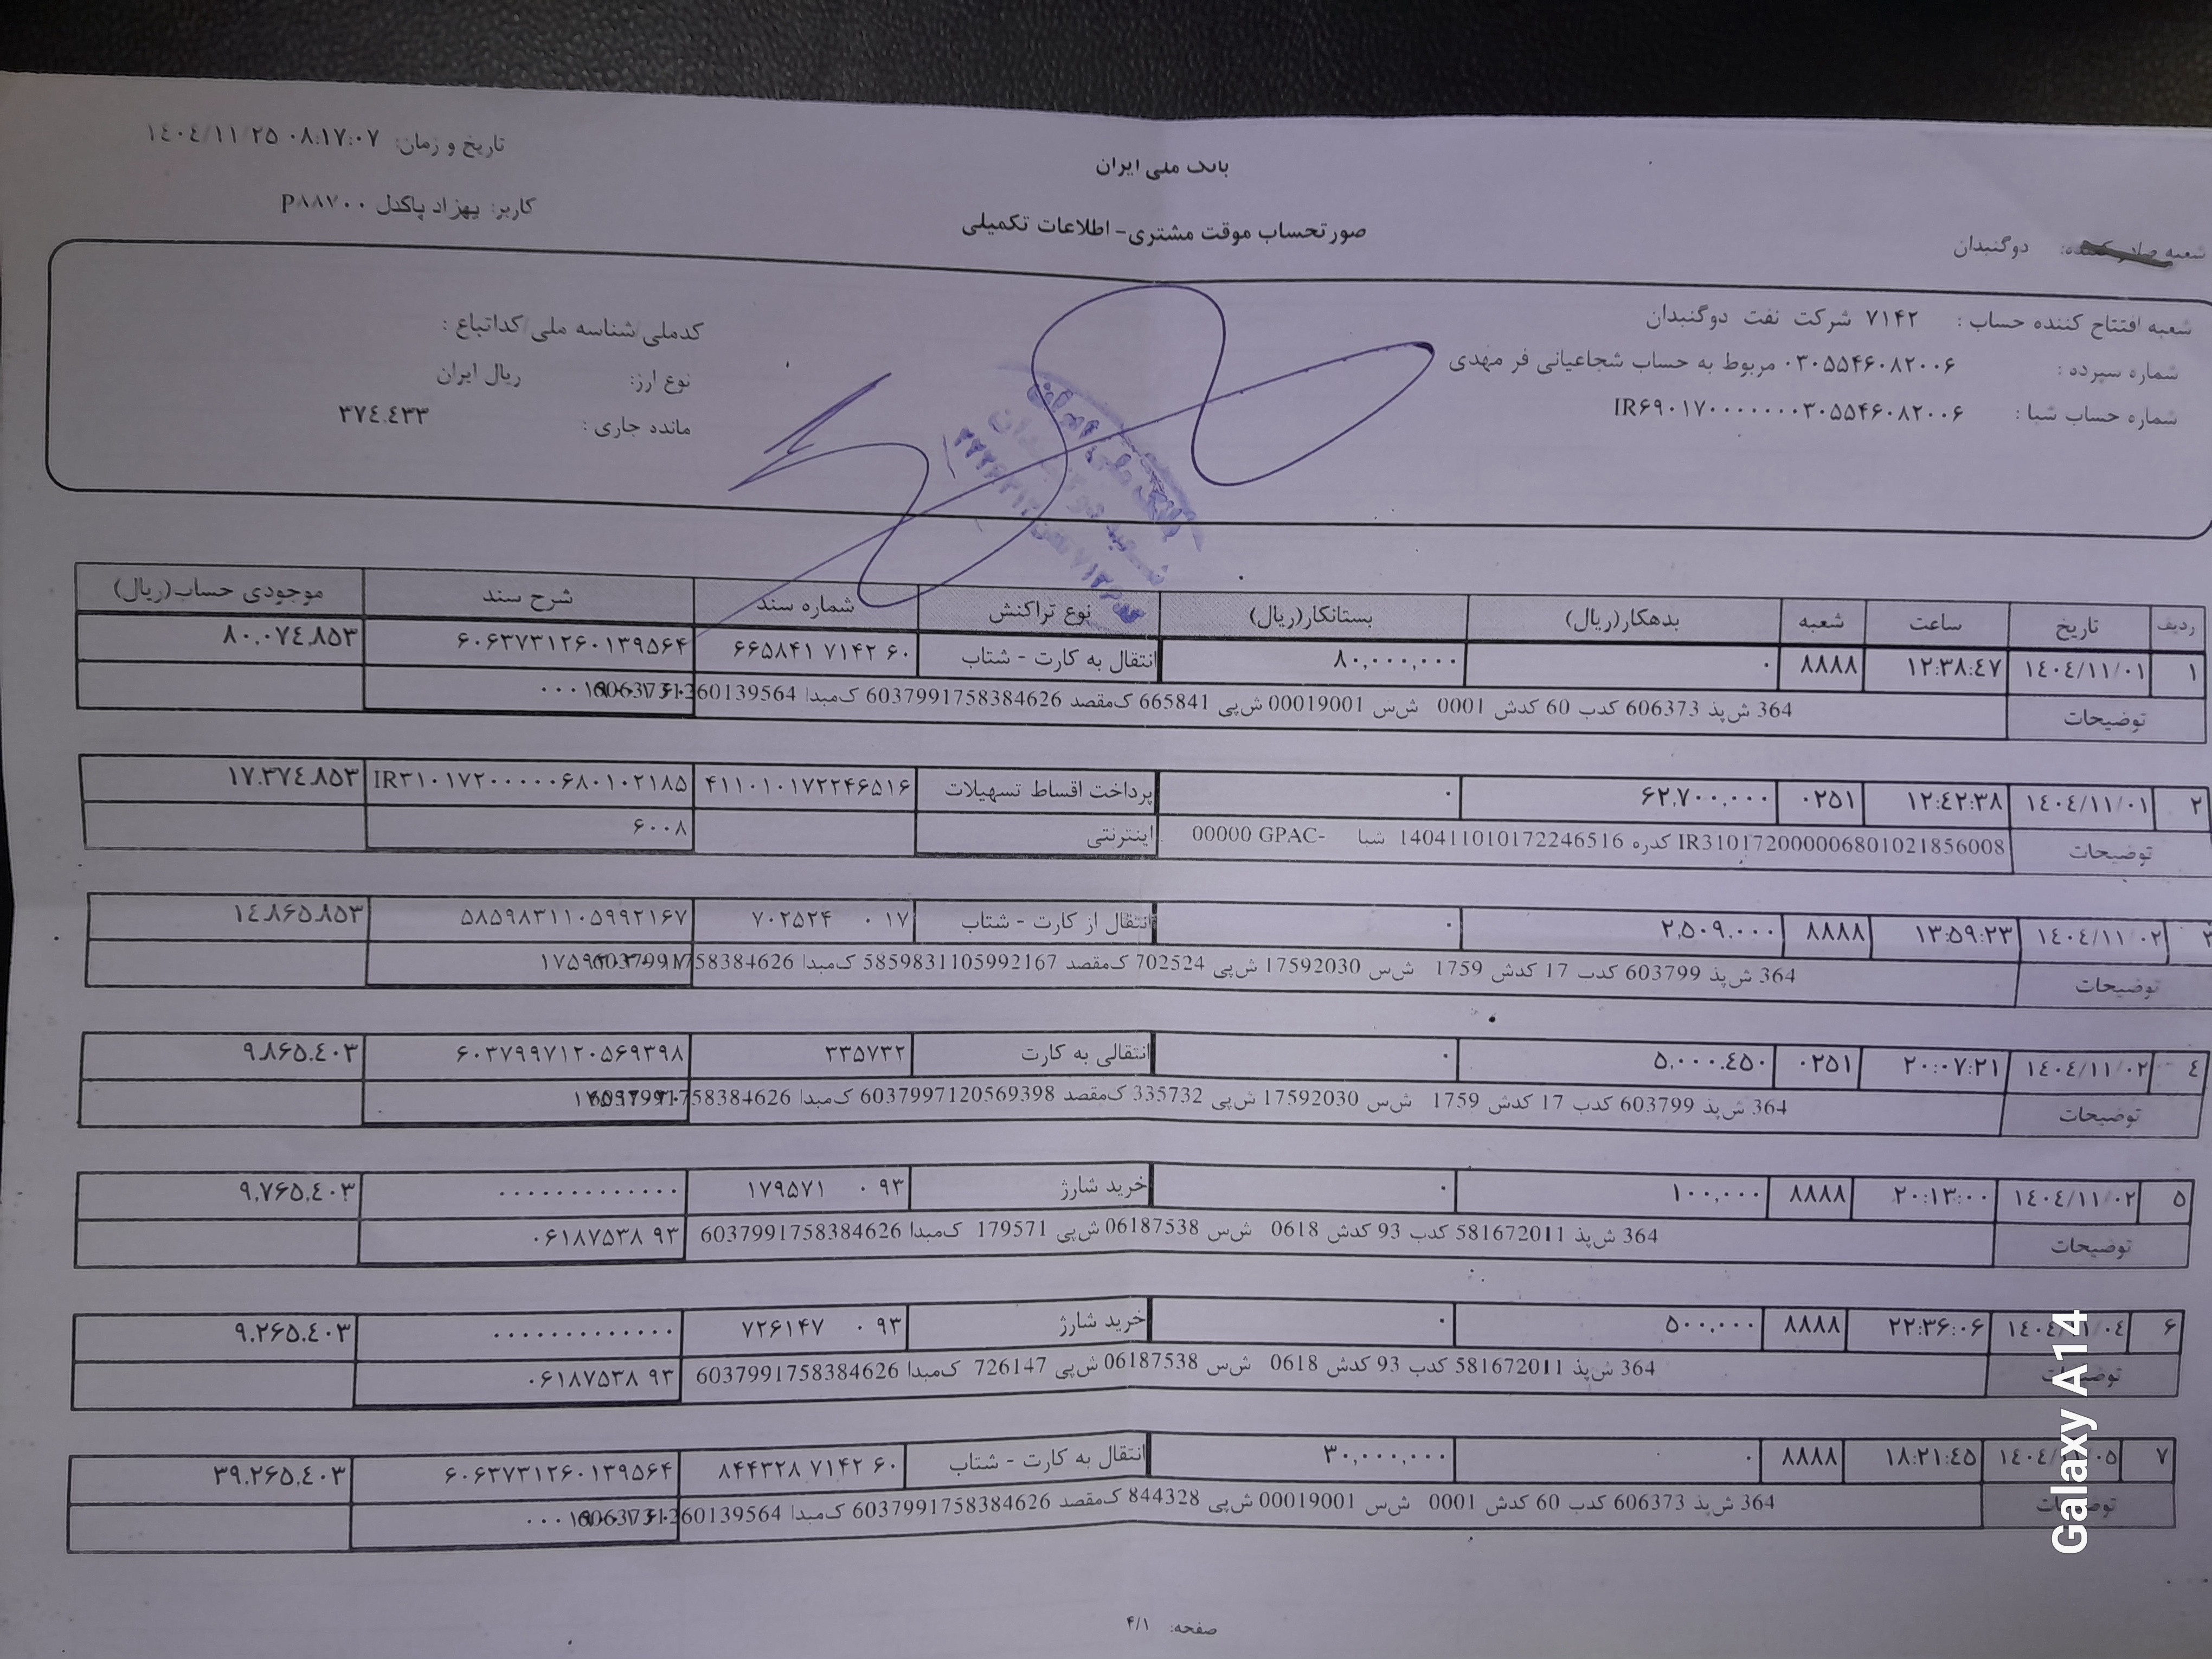 تاریخ و زمان: ۱٤۰٤/۱۱/۲۵ ۰۸:۱۷:۰۷
بانک ملی ایران
کاربر: بهزاد پاکدل P۸۸۷۰۰
صورتحساب موقت مشتری- اطلاعات تکمیلی
شعبه صادر کننده: دوگنبدان
شعبه افتتاح کننده حساب : ۷۱۴۲ شرکت نفت دوگنبدان
کدملی/شناسه ملی/کداتباع :
شماره سپرده : ۰۳۰۵۵۴۶۰۸۲۰۰۶ مربوط به حساب شجاعیانی فر مهدی
نوع ارز: ریال ایران
شماره حساب شبا : IR۶۹۰۱۷۰۰۰۰۰۰۰۳۰۵۵۴۶۰۸۲۰۰۶
مانده جاری : ۳۷٤,٤۳۳
ردیف تاریخ ساعت شعبه بدهکار(ریال) بستانکار(ریال) نوع تراکنش شماره سند شرح سند موجودی حساب(ریال)
۱ ۱٤۰٤/۱۱/۰۱ ۱۲:۳۸:٤۷ ۸۸۸۸ ۰ ۸۰,۰۰۰,۰۰۰ انتقال به کارت - شتاب ۶۰ ۷۱۴۲ ۶۶۵۸۴۱ ۶۰۶۳۷۳۱۲۶۰۱۳۹۵۶۴ ۸۰,۰۷٤,۸۵۳
توضیحات 364 ش‌پذ 606373 کدب 60 کدش 0001 ش‌س 00019001 ش‌پی 665841 ک‌مقصد 6037991758384626 ک‌مبدا 6063731260139564
۲ ۱٤۰٤/۱۱/۰۱ ۱۲:٤۲:۳۸ ۰۲۵۱ ۶۲,۷۰۰,۰۰۰ ۰ پرداخت اقساط تسهیلات ۴۱۱۰۱۰۱۷۲۲۴۶۵۱۶ IR۳۱۰۱۷۲۰۰۰۰۰۰۶۸۰۱۰۲۱۸۵ ۱۷,۳۷٤,۸۵۳
توضیحات IR310172000006801021856008 کدره 140411010172246516 شبا 00000 GPAC- اینترنتی ۶۰۰۸
۳ ۱٤۰٤/۱۱/۰۲ ۱۳:۵۹:۲۳ ۸۸۸۸ ۲,۵۰۹,۰۰۰ ۰ انتقال از کارت - شتاب ۰ ۱۷ ۷۰۲۵۲۴ ۵۸۵۹۸۳۱۱۰۵۹۹۲۱۶۷ ۱٤,۸۶۵,۸۵۳
توضیحات 364 ش‌پذ 603799 کدب 17 کدش 1759 ش‌س 17592030 ش‌پی 702524 ک‌مقصد 5859831105992167 ک‌مبدا 6037991758384626
٤ ۱٤۰٤/۱۱/۰۲ ۲۰:۰۷:۲۱ ۰۲۵۱ ۵,۰۰۰,٤۵۰ ۰ انتقالی به کارت ۳۳۵۷۳۲ ۶۰۳۷۹۹۷۱۲۰۵۶۹۳۹۸ ۹,۸۶۵,٤۰۳
توضیحات 364 ش‌پذ 603799 کدب 17 کدش 1759 ش‌س 17592030 ش‌پی 335732 ک‌مقصد 6037997120569398 ک‌مبدا 6037991758384626
۵ ۱٤۰٤/۱۱/۰۲ ۲۰:۱۳:۰۰ ۸۸۸۸ ۱۰۰,۰۰۰ ۰ خرید شارژ ۰ ۹۳ ۱۷۹۵۷۱ ۰۰۰۰۰۰۰۰۰۰۰۰۰ ۹,۷۶۵,٤۰۳
توضیحات 364 ش‌پذ 581672011 کدب 93 کدش 0618 ش‌س 06187538 ش‌پی 179571 ک‌مبدا 6037991758384626 ۹۳ ۰۶۱۸۷۵۳۸
۶ ۱٤۰٤/۱۱/۰٤ ۲۲:۳۶:۰۶ ۸۸۸۸ ۵۰۰,۰۰۰ ۰ خرید شارژ ۰ ۹۳ ۷۲۶۱۴۷ ۰۰۰۰۰۰۰۰۰۰۰۰۰ ۹,۲۶۵,٤۰۳
توضیحات 364 ش‌پذ 581672011 کدب 93 کدش 0618 ش‌س 06187538 ش‌پی 726147 ک‌مبدا 6037991758384626 ۹۳ ۰۶۱۸۷۵۳۸
۷ ۱۸:۲۱:٤۵ ۸۸۸۸ ۰ ۳۰,۰۰۰,۰۰۰ انتقال به کارت - شتاب ۶۰ ۷۱۴۲ ۸۴۴۳۲۸ ۶۰۶۳۷۳۱۲۶۰۱۳۹۵۶۴ ۳۹,۲۶۵,٤۰۳
توضیحات 364 ش‌پذ 606373 کدب 60 کدش 0001 ش‌س 00019001 ش‌پی 844328 ک‌مقصد 6037991758384626 ک‌مبدا 6063731260139564
صفحه: ۴/۱
Galaxy A14